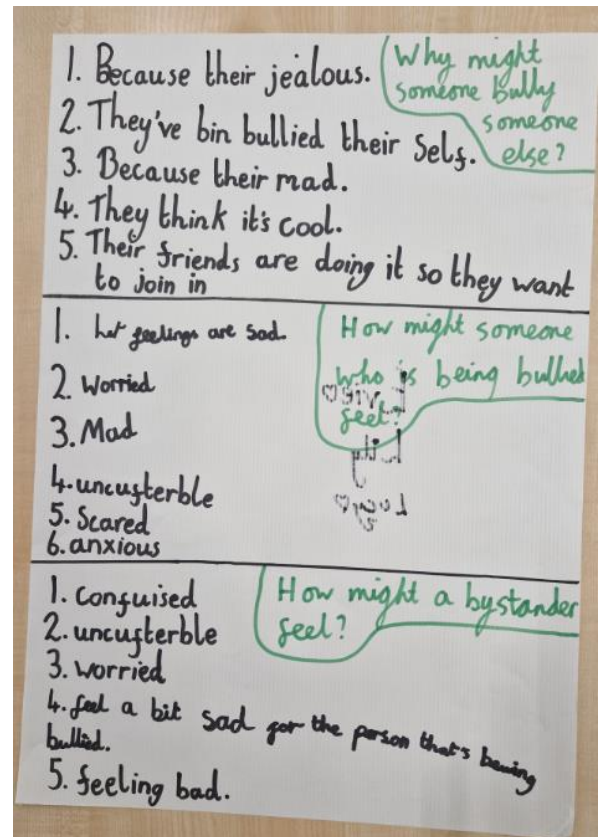 Why might
someone bully
someone
else?
1. Because their jealous.
2. They've bin bullied their Self.
3. Because their mad.
4. They think it's cool.
5. Their friends are doing it so they want
to join in
How might someone
who is being bullied
feel?
1. her feelings are sad.
2. Worried
3. Mad
4. uncufterble
5. Scared
6. anxious
How might a bystander
feel?
1. Confuised
2. uncufterble
3. worried
4. feel a bit sad for the person that's beuing
bullied.
5. feeling bad.